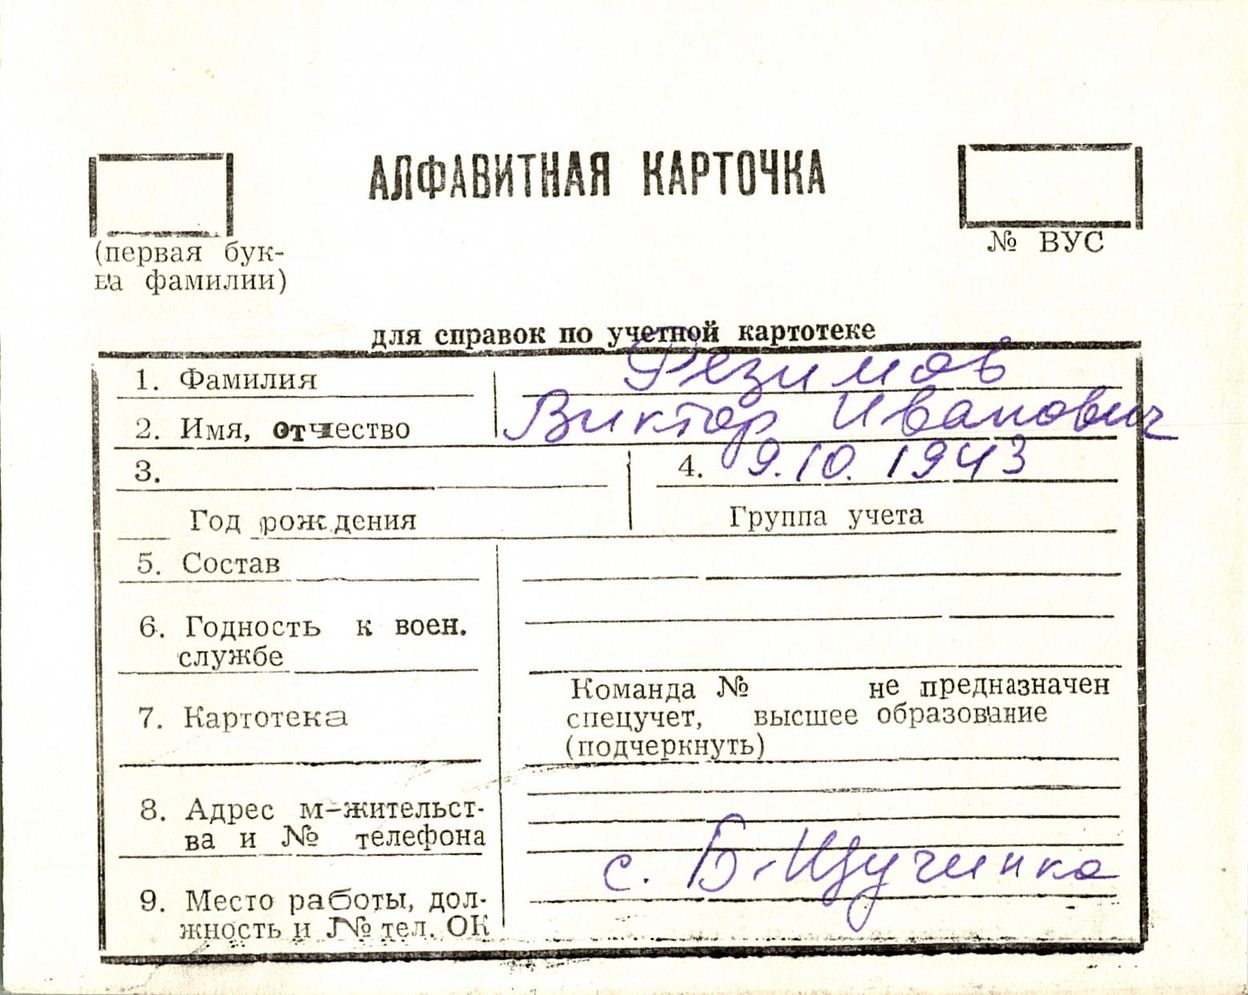 АЛФАВИТНАЯ КАРТОЧКА
(первая бук-
ва фамилии)
№ ВУС
для справок по учетной картотеке
1. Фамилия Резимов
2. Имя, отчество Виктор Иванович
3.
4. 9.10.1943
Год рождения
Группа учета
5. Состав
6. Годность к воен.
службе
7. Картотека
Команда № не предназначен
спецучет, высшее образование
(подчеркнуть)
8. Адрес м-жительст-
ва и № телефона
с. Б-Щучинка
9. Место работы, дол-
жность и № тел. ОК